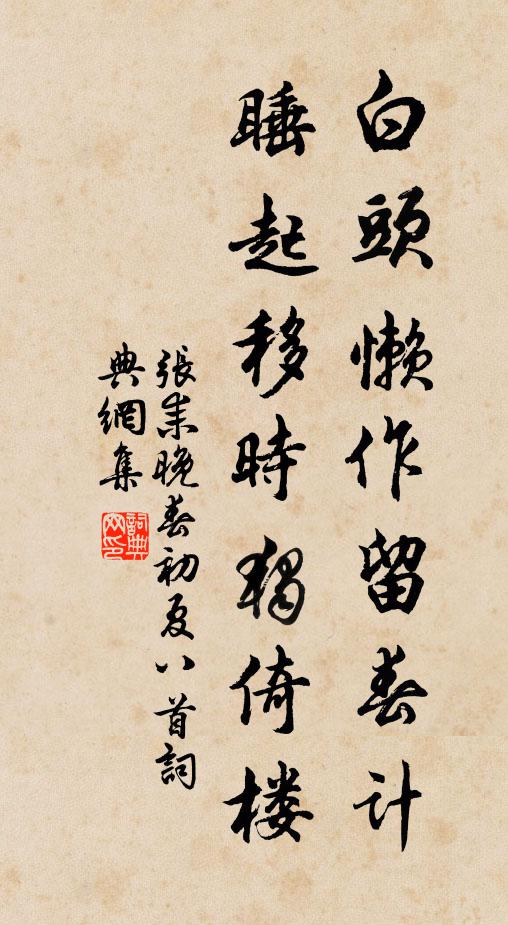 白頭懶作留春計
睡起移時獨倚楼
張耒晚春初夏八首詞
典網集
詞典
网印